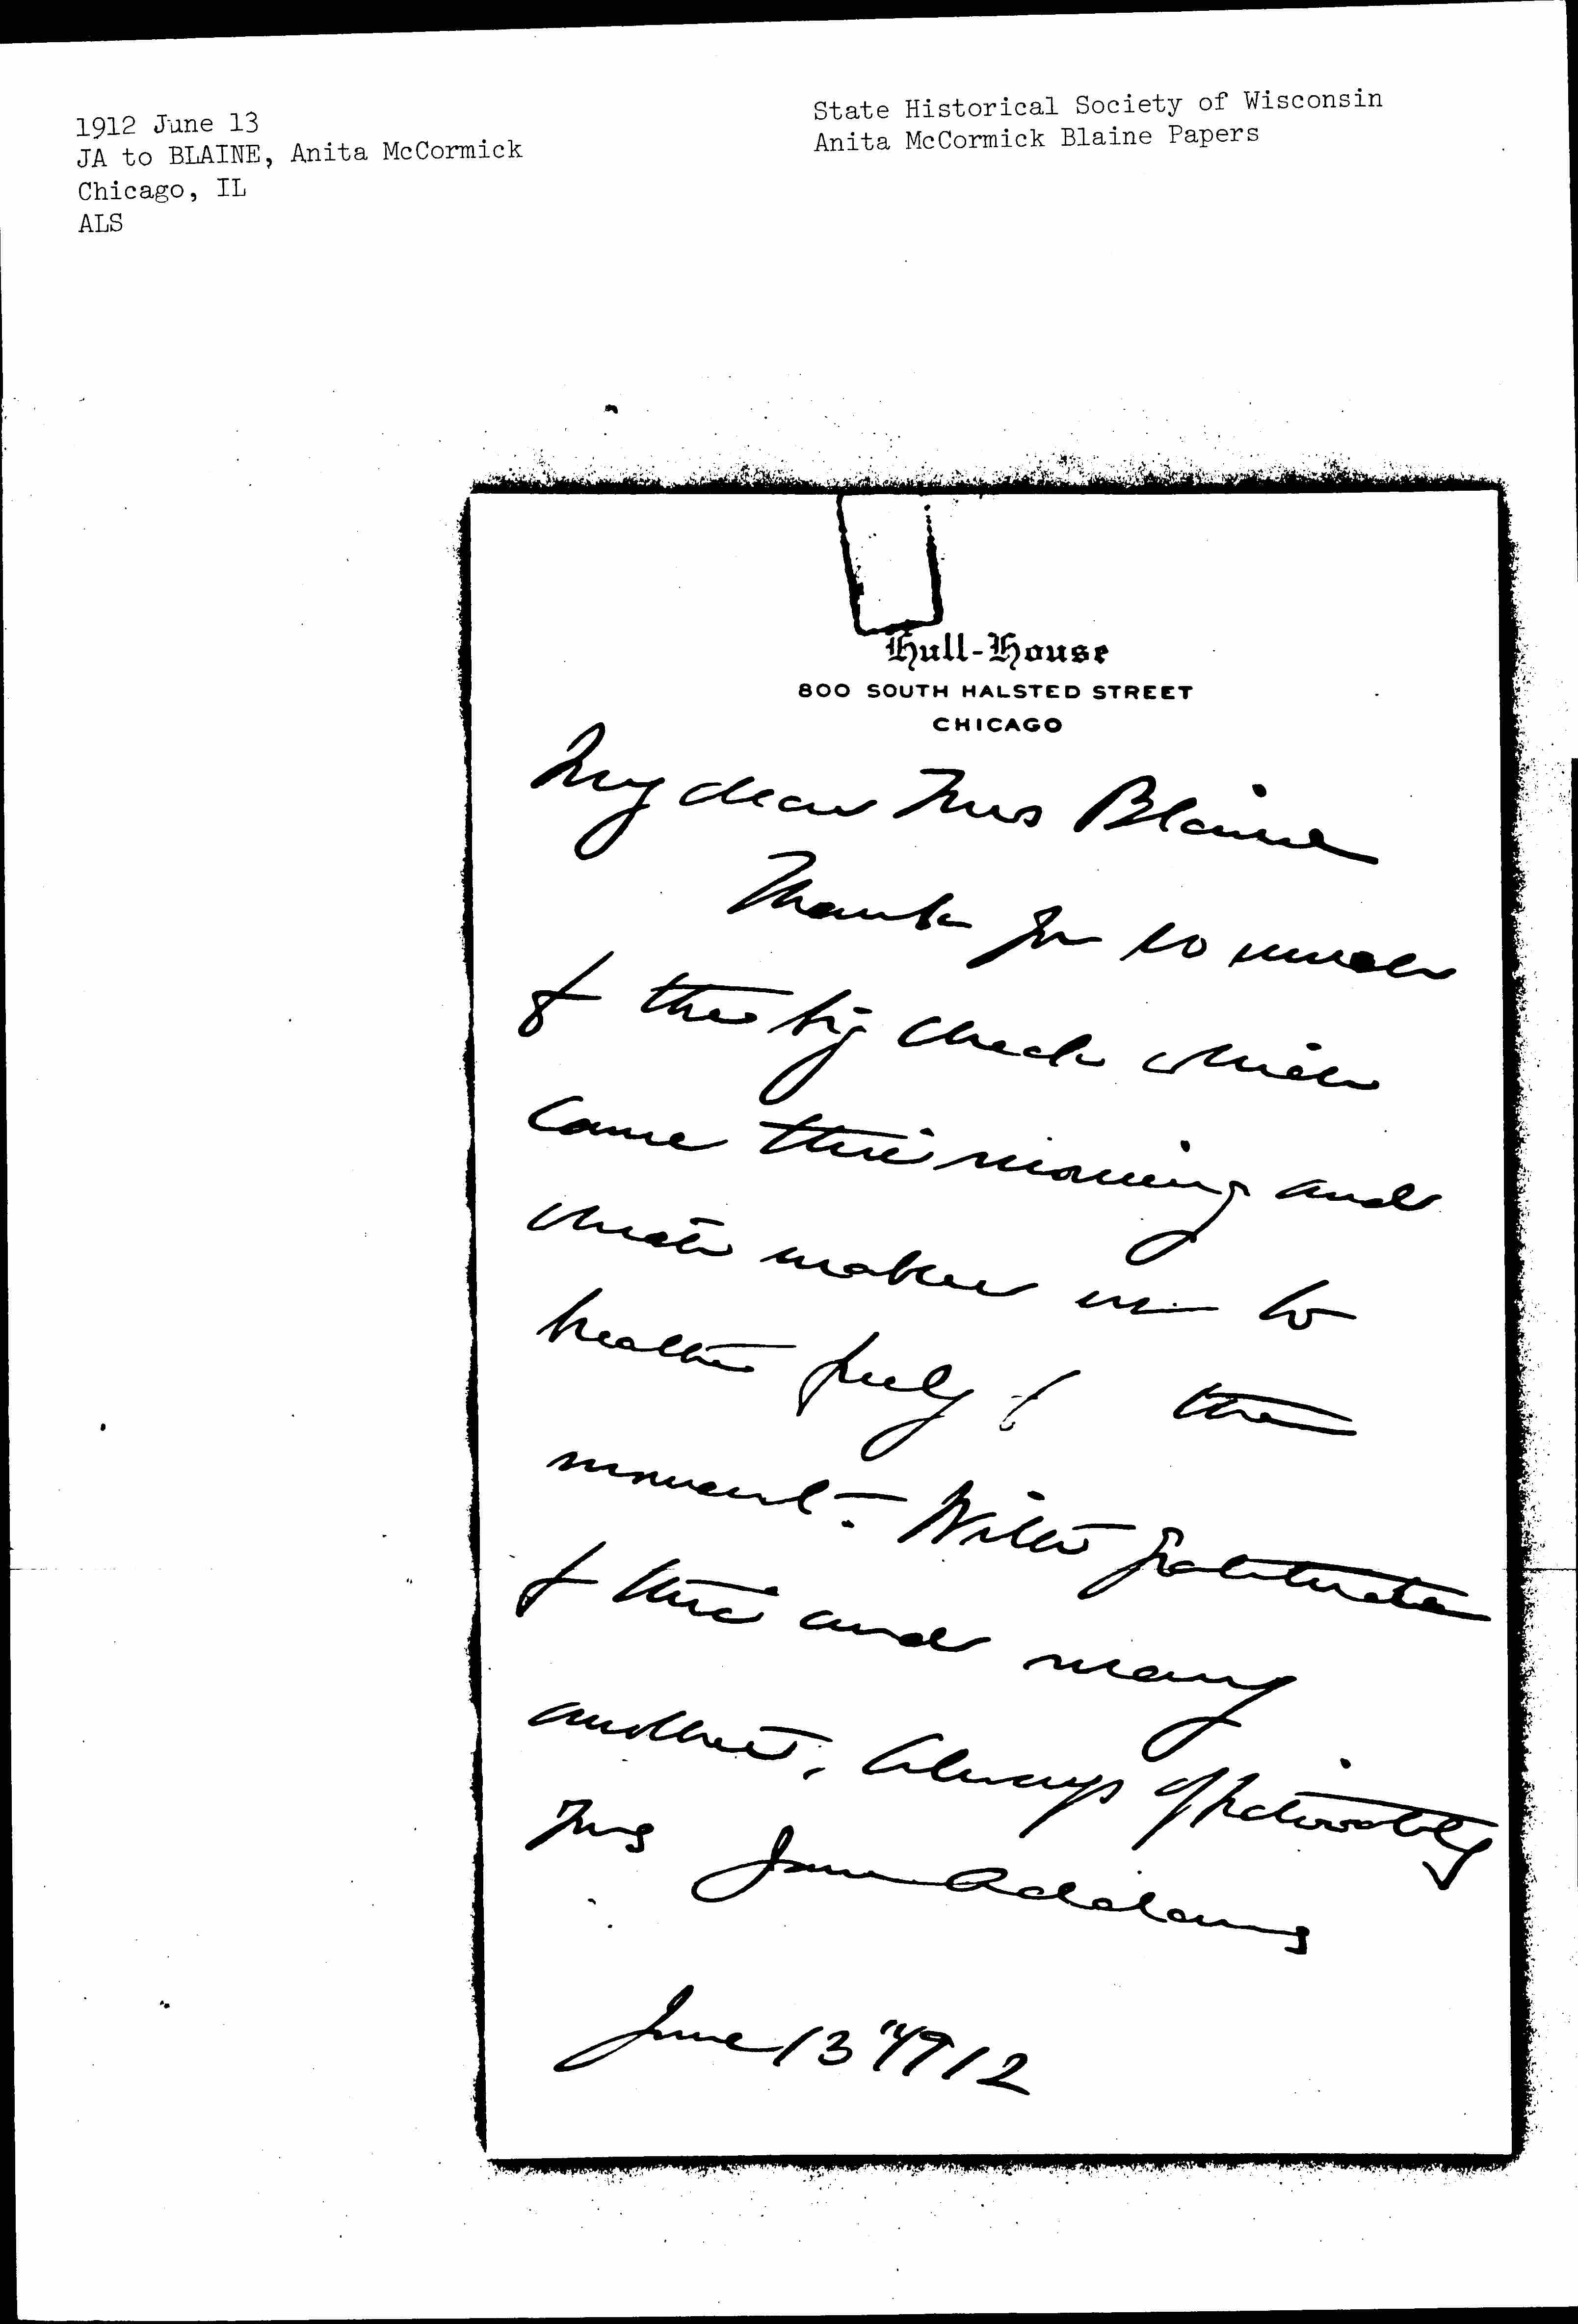 1912 June 13
JA to BLAINE, Anita McCormick
Chicago, IL
ALS
State Historical Society of Wisconsin
Anita McCormick Blaine Papers
Hull-House
800 SOUTH HALSTED STREET
CHICAGO
My dear Mrs Blaine
Thanks for so much
of the big check which
came this morning and
which makes us to
breathe freely for the
moment. With gratitude
for this and many
another, Always affectionately
Yrs Jane Addams
June 13" 1912